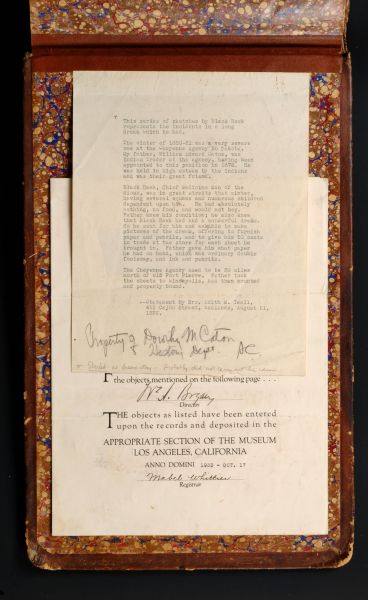 This series of sketches by Black Hawk
represents the incidents in a long
dream which he had.
The winter of 1880-81 was a very severe
one at the Cheyenne Agency So Dakota,
My father, William Edward Caton, was
Indian Trader at the agency, having been
appointed to this position in 1878. He
was held in high esteem by the Indians
and was their great friend.
Black Hawk, Chief Medicine Man of the
Sioux, was in great straits that winter,
having several squaws and numerous children
dependent upon him. He had absolutely
nothing, no food, and would not beg.
Father knew his condition; he also knew
that Black Hawk had had a wonderful dream.
So he sent for him and asked him to make
pictures of the dream, offering to furnish
paper and pencils, and to give him 50 cents
in trade at the store for each sheet he
brought in. Father gave him what paper
he had on hand, which was ordinary double
foolscap, and ink and pencils.
The Cheyenne Agency used to be 90 miles
north of old Fort Pierre. Father took
the sheets to Minneapolis, had them mounted
and properly bound.
--Statement by Mrs. Edith M. Teall,
412 Cajon Street, Redlands, August 21,
1932.
Property of Dorothy M. Caton
Western Dept. DC.
the objects mentioned on the following page . . .
Wm A. Bryan
Director
THE objects as listed have been entered
upon the records and deposited in the
APPROPRIATE SECTION OF THE MUSEUM
LOS ANGELES, CALIFORNIA
ANNO DOMINI 1932 - OCT. 17
Mabel Whittier
Registrar